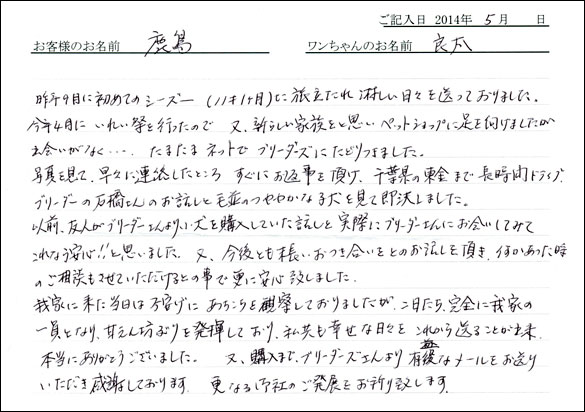 ご記入日 2014年 5月 日
お客様のお名前 鹿島 ワンちゃんのお名前 良太
昨年9月に初めてのシーズー(11才1ヶ月)に旅立たれ淋しい日々を送っておりました。
今年4月に いれい祭を行ったので 又、新らしい家族をと思いペットショップに足を向けましたが
出会いがなく…. たまたまネットでブリーダーズにたどりつきました。
写真を見て、早々に連絡したところ すぐにお返事を頂け、千葉県の東金まで長時間ドライブ
ブリーダーの石橋さんのお話しと毛並のつややかな子犬を見て即決しました。
以前、友人がブリーダーさんより、小犬を購入していた話しと実際にブリーダーさんにお会いしてみて
これなら安心!!と思いました。又、今後とも長いおつき合いをとのお話しを頂き、何かあった時
のご相談もさせていただけるとの事で更に安心致しました。
我家に来た当日は不安げに あちこちを観察しておりましたが、二日たち、完全に我家の
一員となり、甘えん坊ぶりを発揮しており、私共も幸せな日々を これから送ることが出来、
本当にありがとうございました。 又、購入まで、ブリーダーズさんより 有益なメールをお送り
いただき感謝しております。 更なる御社のご発展をお祈り致します。